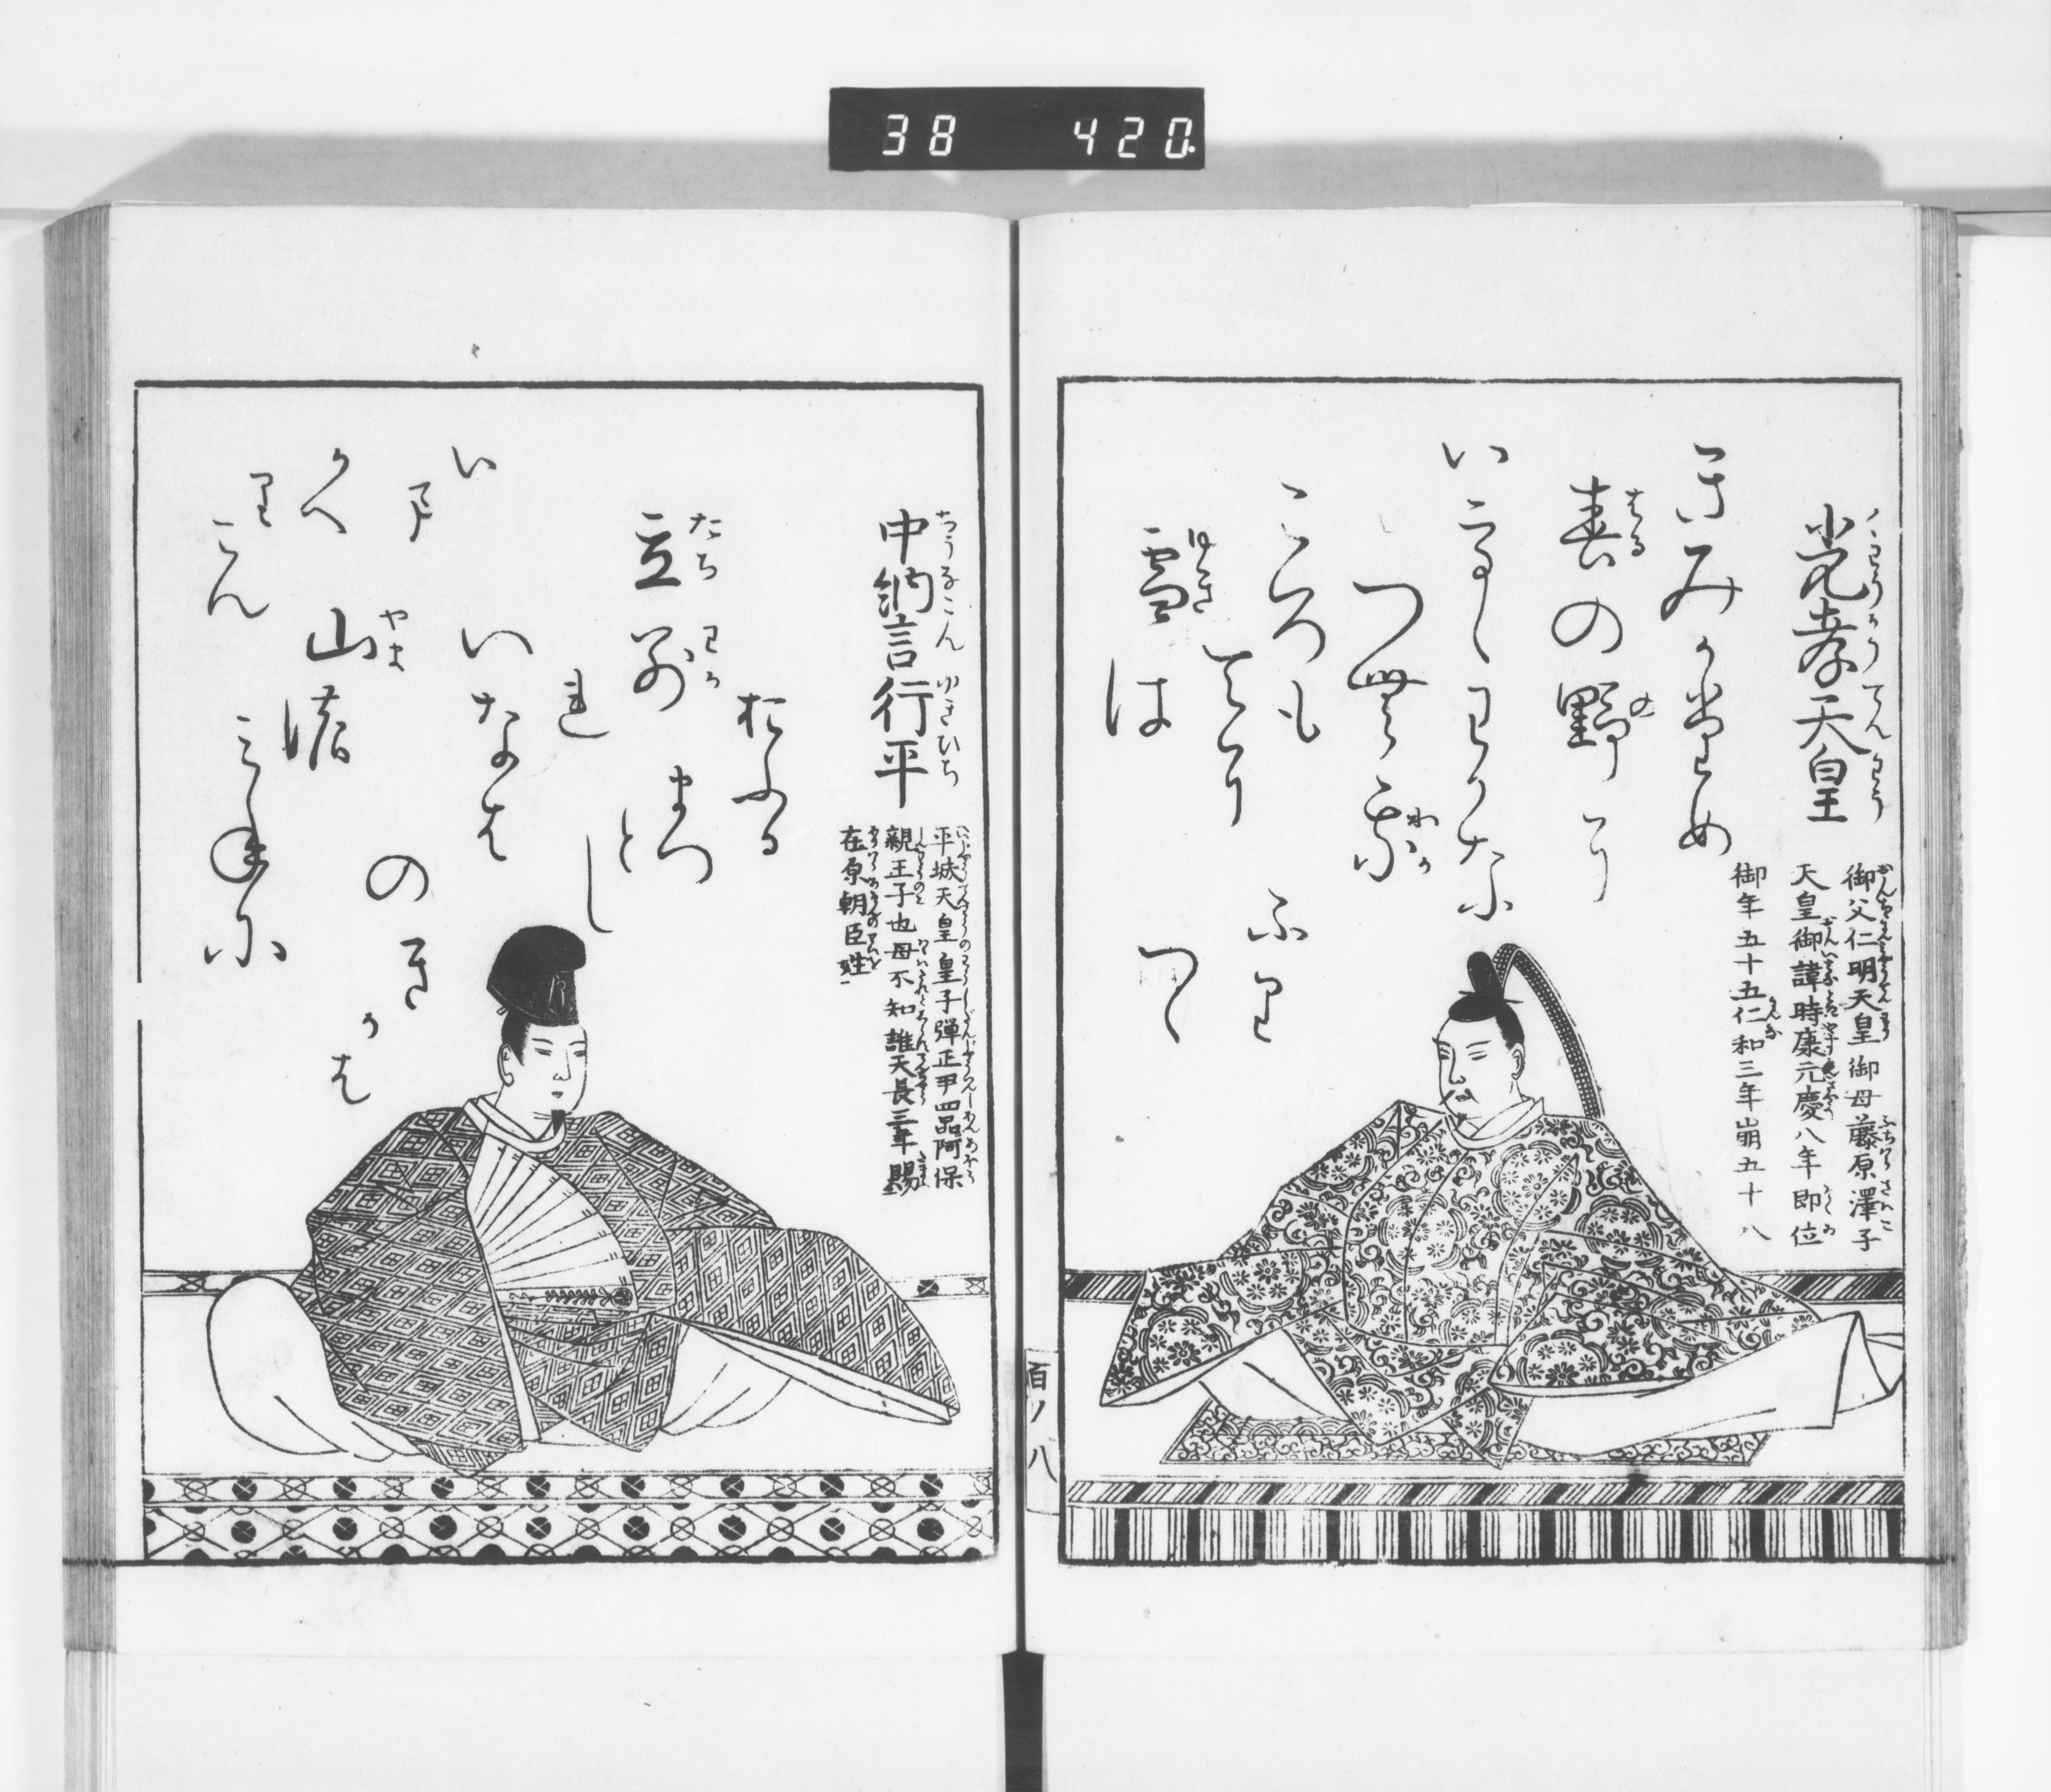 38 420
光孝天皇
御父仁明天皇御母藤原澤子
天皇御諱時康元慶八年即位
御年五十五仁和三年崩五十八
きみかため
春の野に
いてゝわかな
つむ我
ころも
てに
雪は
ふり
つゝ
百ノ八
中納言行平
平城天皇皇子弾正尹四品阿保
親王子也母不知誰天長三年賜
在原朝臣姓
立わかれ
いなは
の
山の
みねに
おふる
まつ
とし
きか
は
いま
かへ
りこん